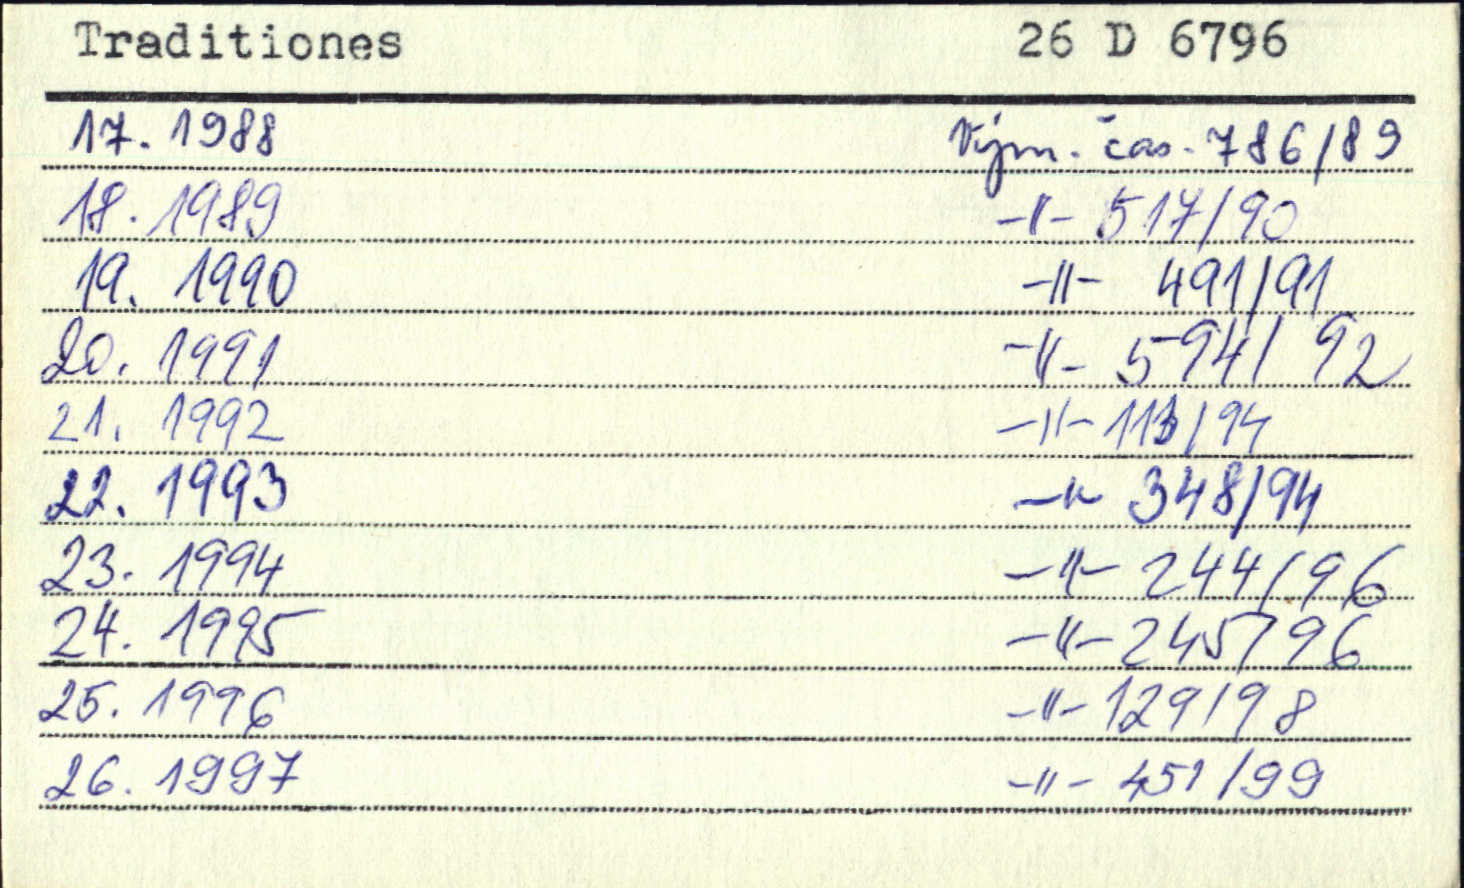 Traditiones 26 D 6796
17. 1988 Vým. čas. 786/89
18. 1989 -"- 517/90
19. 1990 -"- 491/91
20. 1991 -"- 594/92
21. 1992 -"- 113/94
22. 1993 -"- 348/94
23. 1994 -"- 244/96
24. 1995 -"- 245/96
25. 1996 -"- 129/98
26. 1997 -"- 451/99